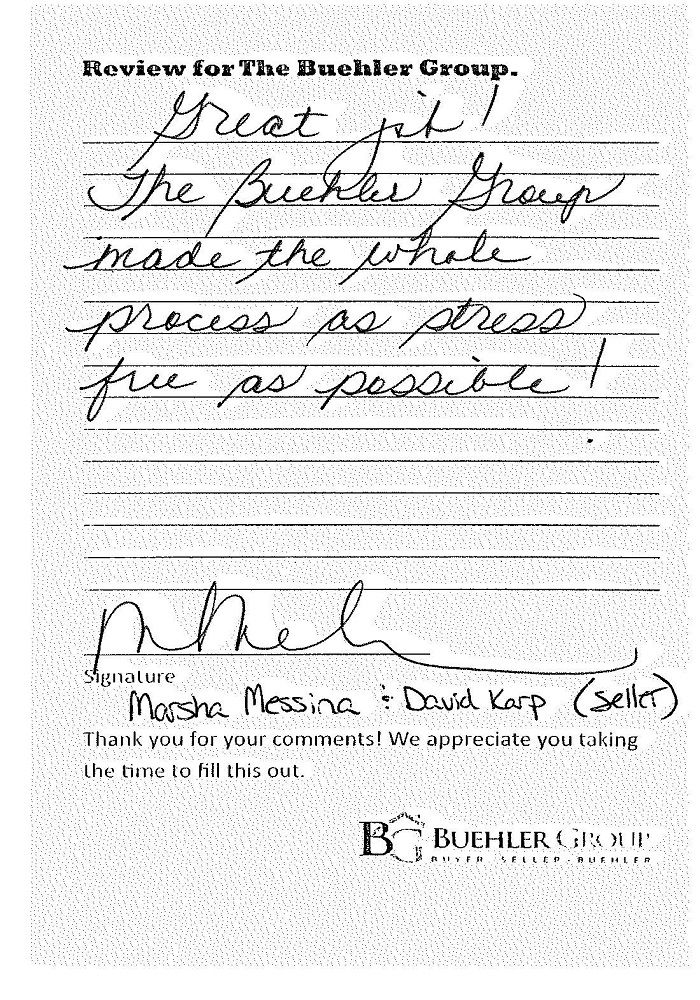 Review for The Buehler Group.
Great job!
The Buehler Group
made the whole
process as stress
free as possible!
Signature
Marsha Messina & David Karp (seller)
Thank you for your comments! We appreciate you taking
the time to fill this out.
BG BUEHLER GROUP
BUYER · SELLER · BUEHLER